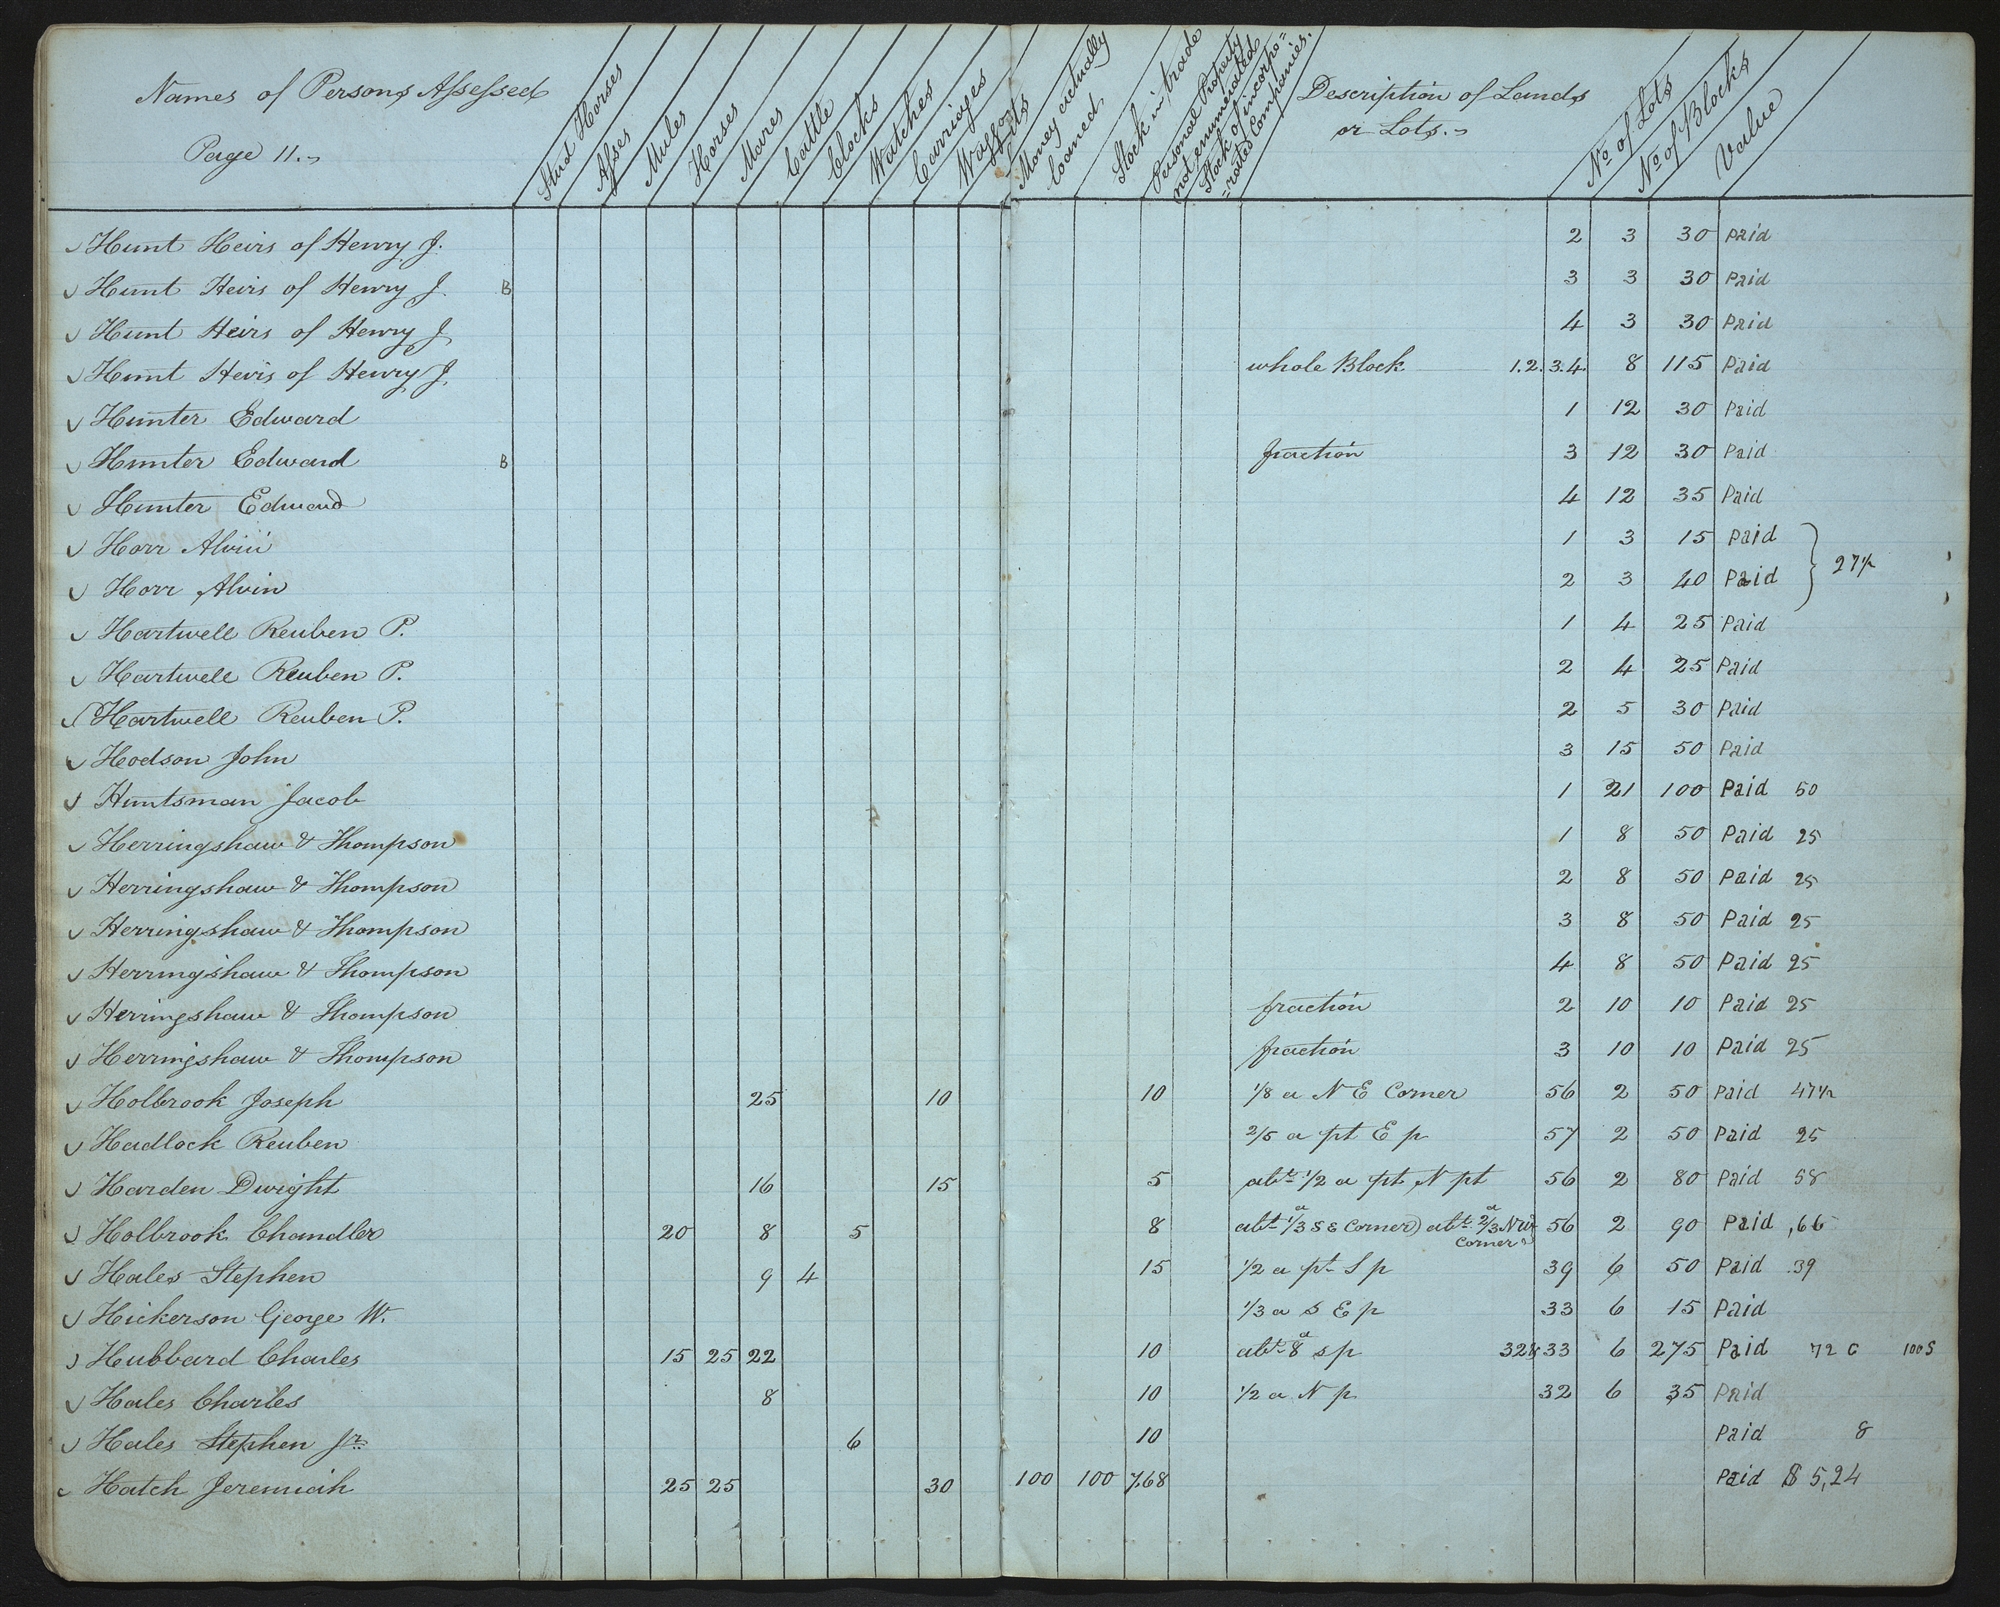 Names of Persons Assessed
Page 11.
Stud Horses
Asses
Mules
Horses
Mares
Cattle
Clocks
Watches
Carriages
Waggons
Money actually loaned
Stock in trade
Personal Property not enumerated
Stock of incorpo=
=rated Companies.
Description of Lands
or Lots.
No of Lots
No of Blocks
Value
Hunt Heirs of Henry J. 2 3 30 Paid
Hunt Heirs of Henry J. B 3 3 30 Paid
Hunt Heirs of Henry J 4 3 30 Paid
Hunt Heirs of Henry J. whole Block 1.2.3.4. 8 115 Paid
Hunter Edward 1 12 30 Paid
Hunter Edward B fraction 3 12 30 Paid
Hunter Edward 4 12 35 Paid
Horr Alvin 1 3 15 Paid
Horr Alvin 2 3 40 Paid } 27½
Hartwell Reuben P. 1 4 25 Paid
Hartwell Reuben P. 2 4 25 Paid
Hartwell Reuben P. 2 5 30 Paid
Hodson John 3 15 50 Paid
Huntsman Jacob 1 21 100 Paid 50
Herringshaw & Thompson 1 8 50 Paid 25
Herringshaw & Thompson 2 8 50 Paid 25
Herringshaw & Thompson 3 8 50 Paid 25
Herringshaw & Thompson 4 8 50 Paid 25
Herringshaw & Thompson fraction 2 10 10 Paid 25
Herringshaw & Thompson fraction 3 10 10 Paid 25
Holbrook Joseph 25 10 10 1/8 a N E Corner 56 2 50 Paid 47½
Hadlock Reuben 2/5 a pt E p 57 2 50 Paid 25
Harden Dwight 16 15 5 abt 1/2 a pt N pt 56 2 80 Paid 58
Holbrook Chandler 20 8 5 8 abt 1/3 a S E Corner) abt 2/3 a N W Corner 56 2 90 Paid ,66
Hales Stephen 9 4 15 1/2 a pt S p 39 6 50 Paid .39
Hickerson George W. 1/3 a S E p 33 6 15 Paid
Hubbard Charles 15 25 22 10 abt 8 a s p 32& 33 6 275 Paid 72 C 100 S
Hales Charles 8 10 1/2 a N p 32 6 35 Paid
Hales Stephen Jr. 6 10 Paid 8
Hatch Jeremiah 25 25 30 100 100 7.68 Paid $ 5,24